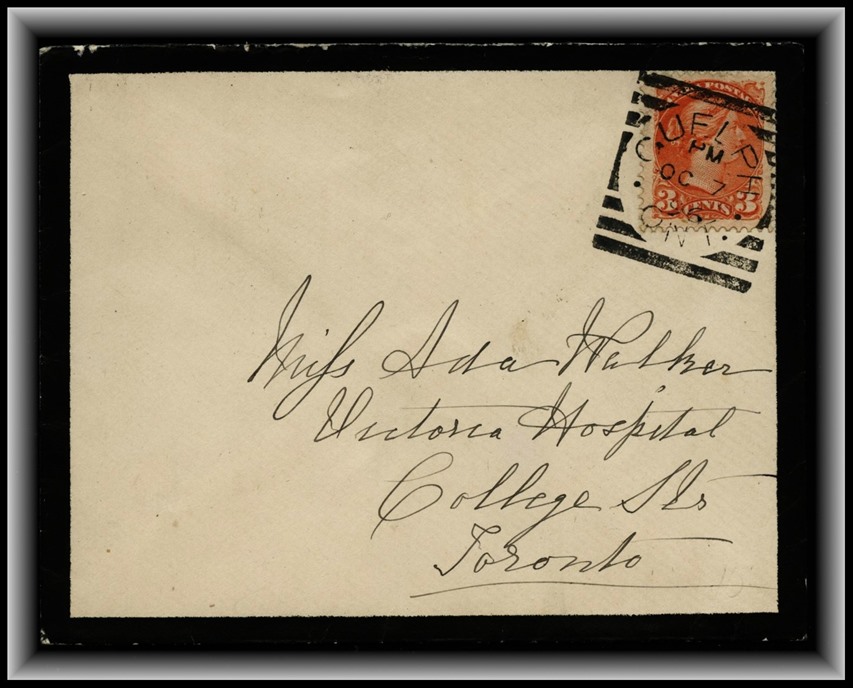 GUELPH
PM
OC 7
ONT
3 CENTS 3
Miss Ada Walker
Victoria Hospital
College Str
Toronto